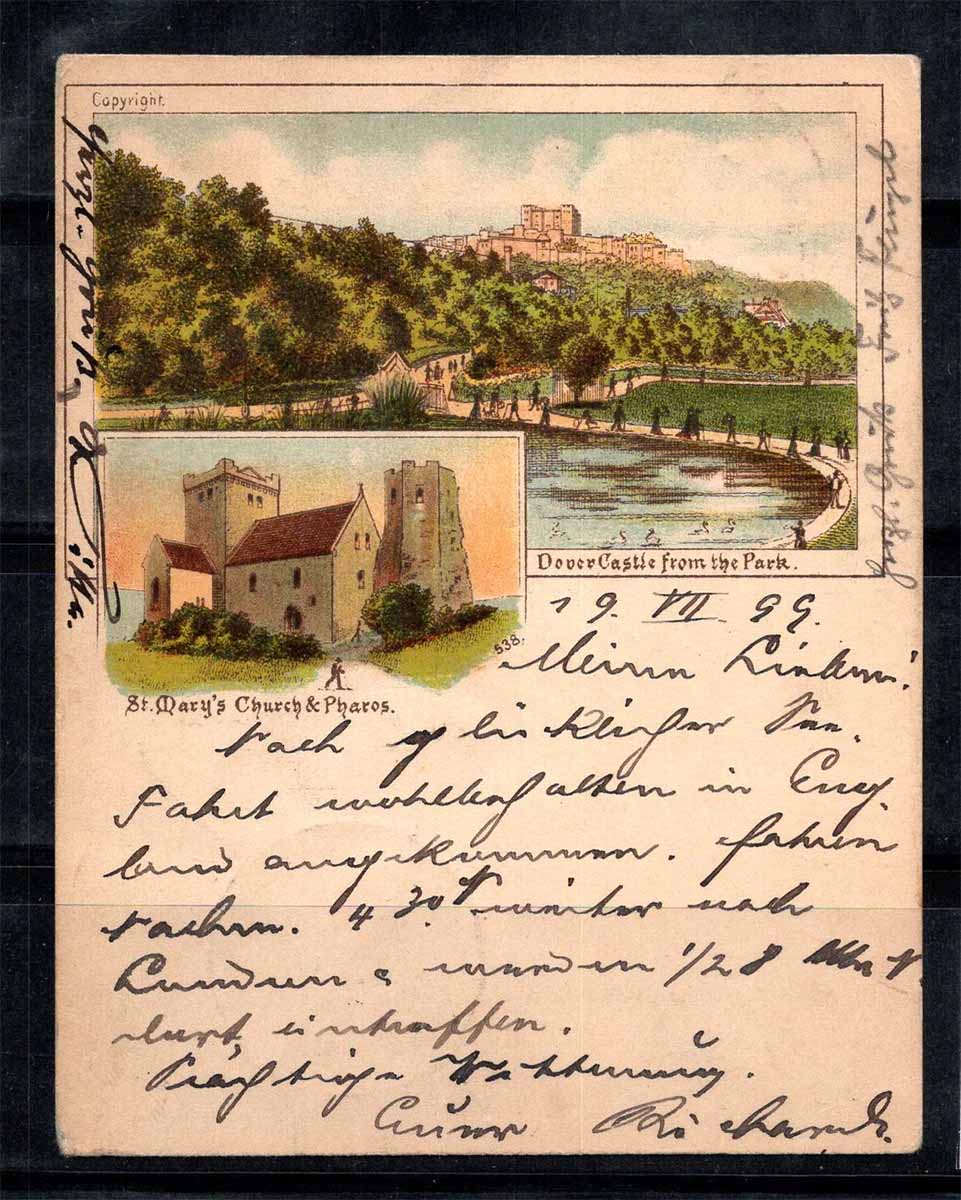 Copyright.
Dover Castle from the Park.
538.
St. Mary's Church & Pharos.
19. VII. 99.
Meine Lieben!
Nach glücklicher See-
fahrt wohlbehalten in Eng-
land angekommen. Fahren
Nachm. 4 30 N weiter nach
London & werden 1/2 8 Uhr N
dort eintreffen.
Prächtige Witterung.
Euer Richard.
Herzl. Gruß